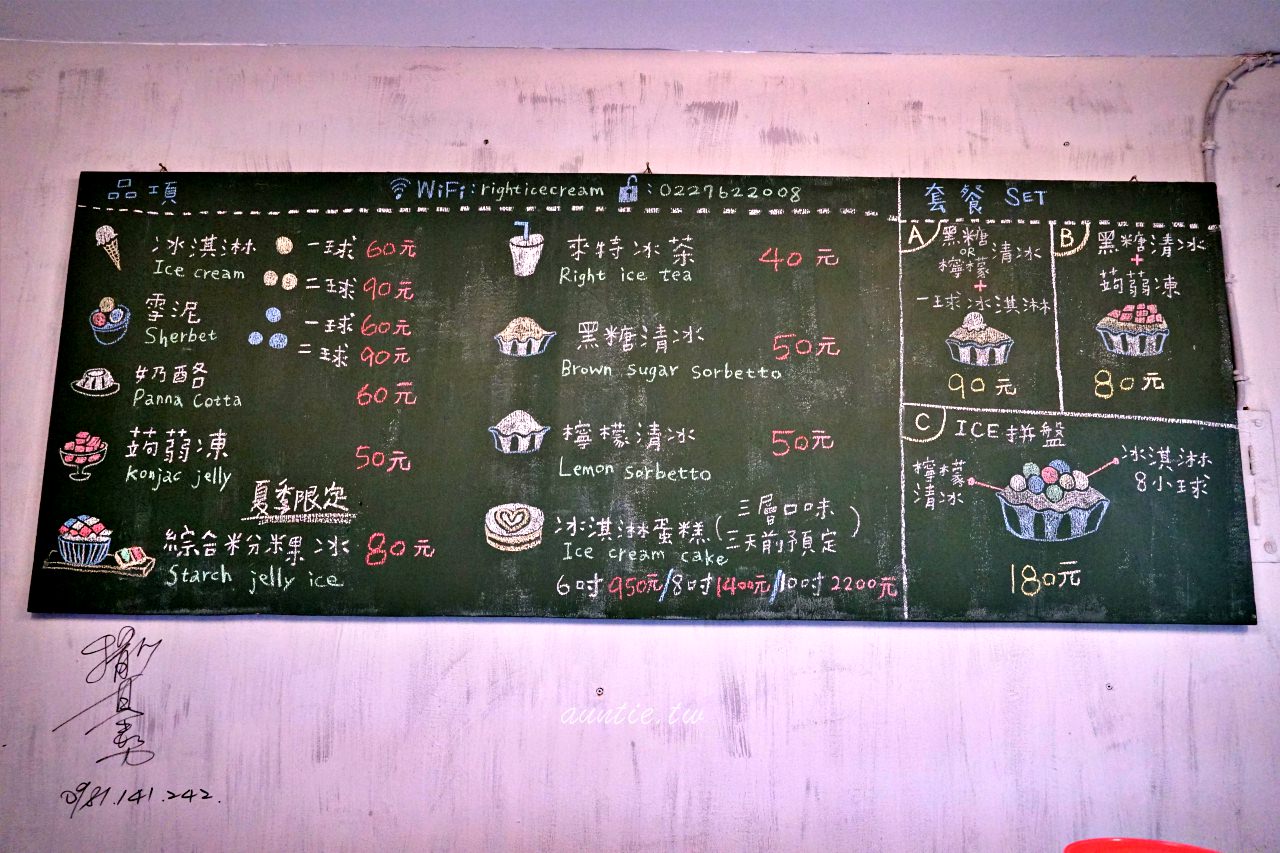 品項
WiFi:righticecream :0227622008
冰淇淋 一球 60元
Ice cream
二球 90元
雪泥 一球 60元
Sherbet
二球 90元
奶酪 60元
Panna Cotta
蒟蒻凍 50元
Konjac jelly
夏季限定
綜合粉粿冰 80元
Starch jelly ice
來特冰茶 40元
Right ice tea
黑糖清冰 50元
Brown sugar sorbetto
檸檬清冰 50元
Lemon sorbetto
冰淇淋蛋糕(三層口味
三天前預定)
Ice cream cake
6吋950元/8吋1400元/10吋2200元
套餐 SET
A
黑糖
OR 清冰
檸檬
+
一球冰淇淋
90元
B
黑糖清冰
+
蒟蒻凍
80元
C
ICE拼盤
檸檬
清冰
冰淇淋
8小球
180元
0981.141.242.
auntie.tw